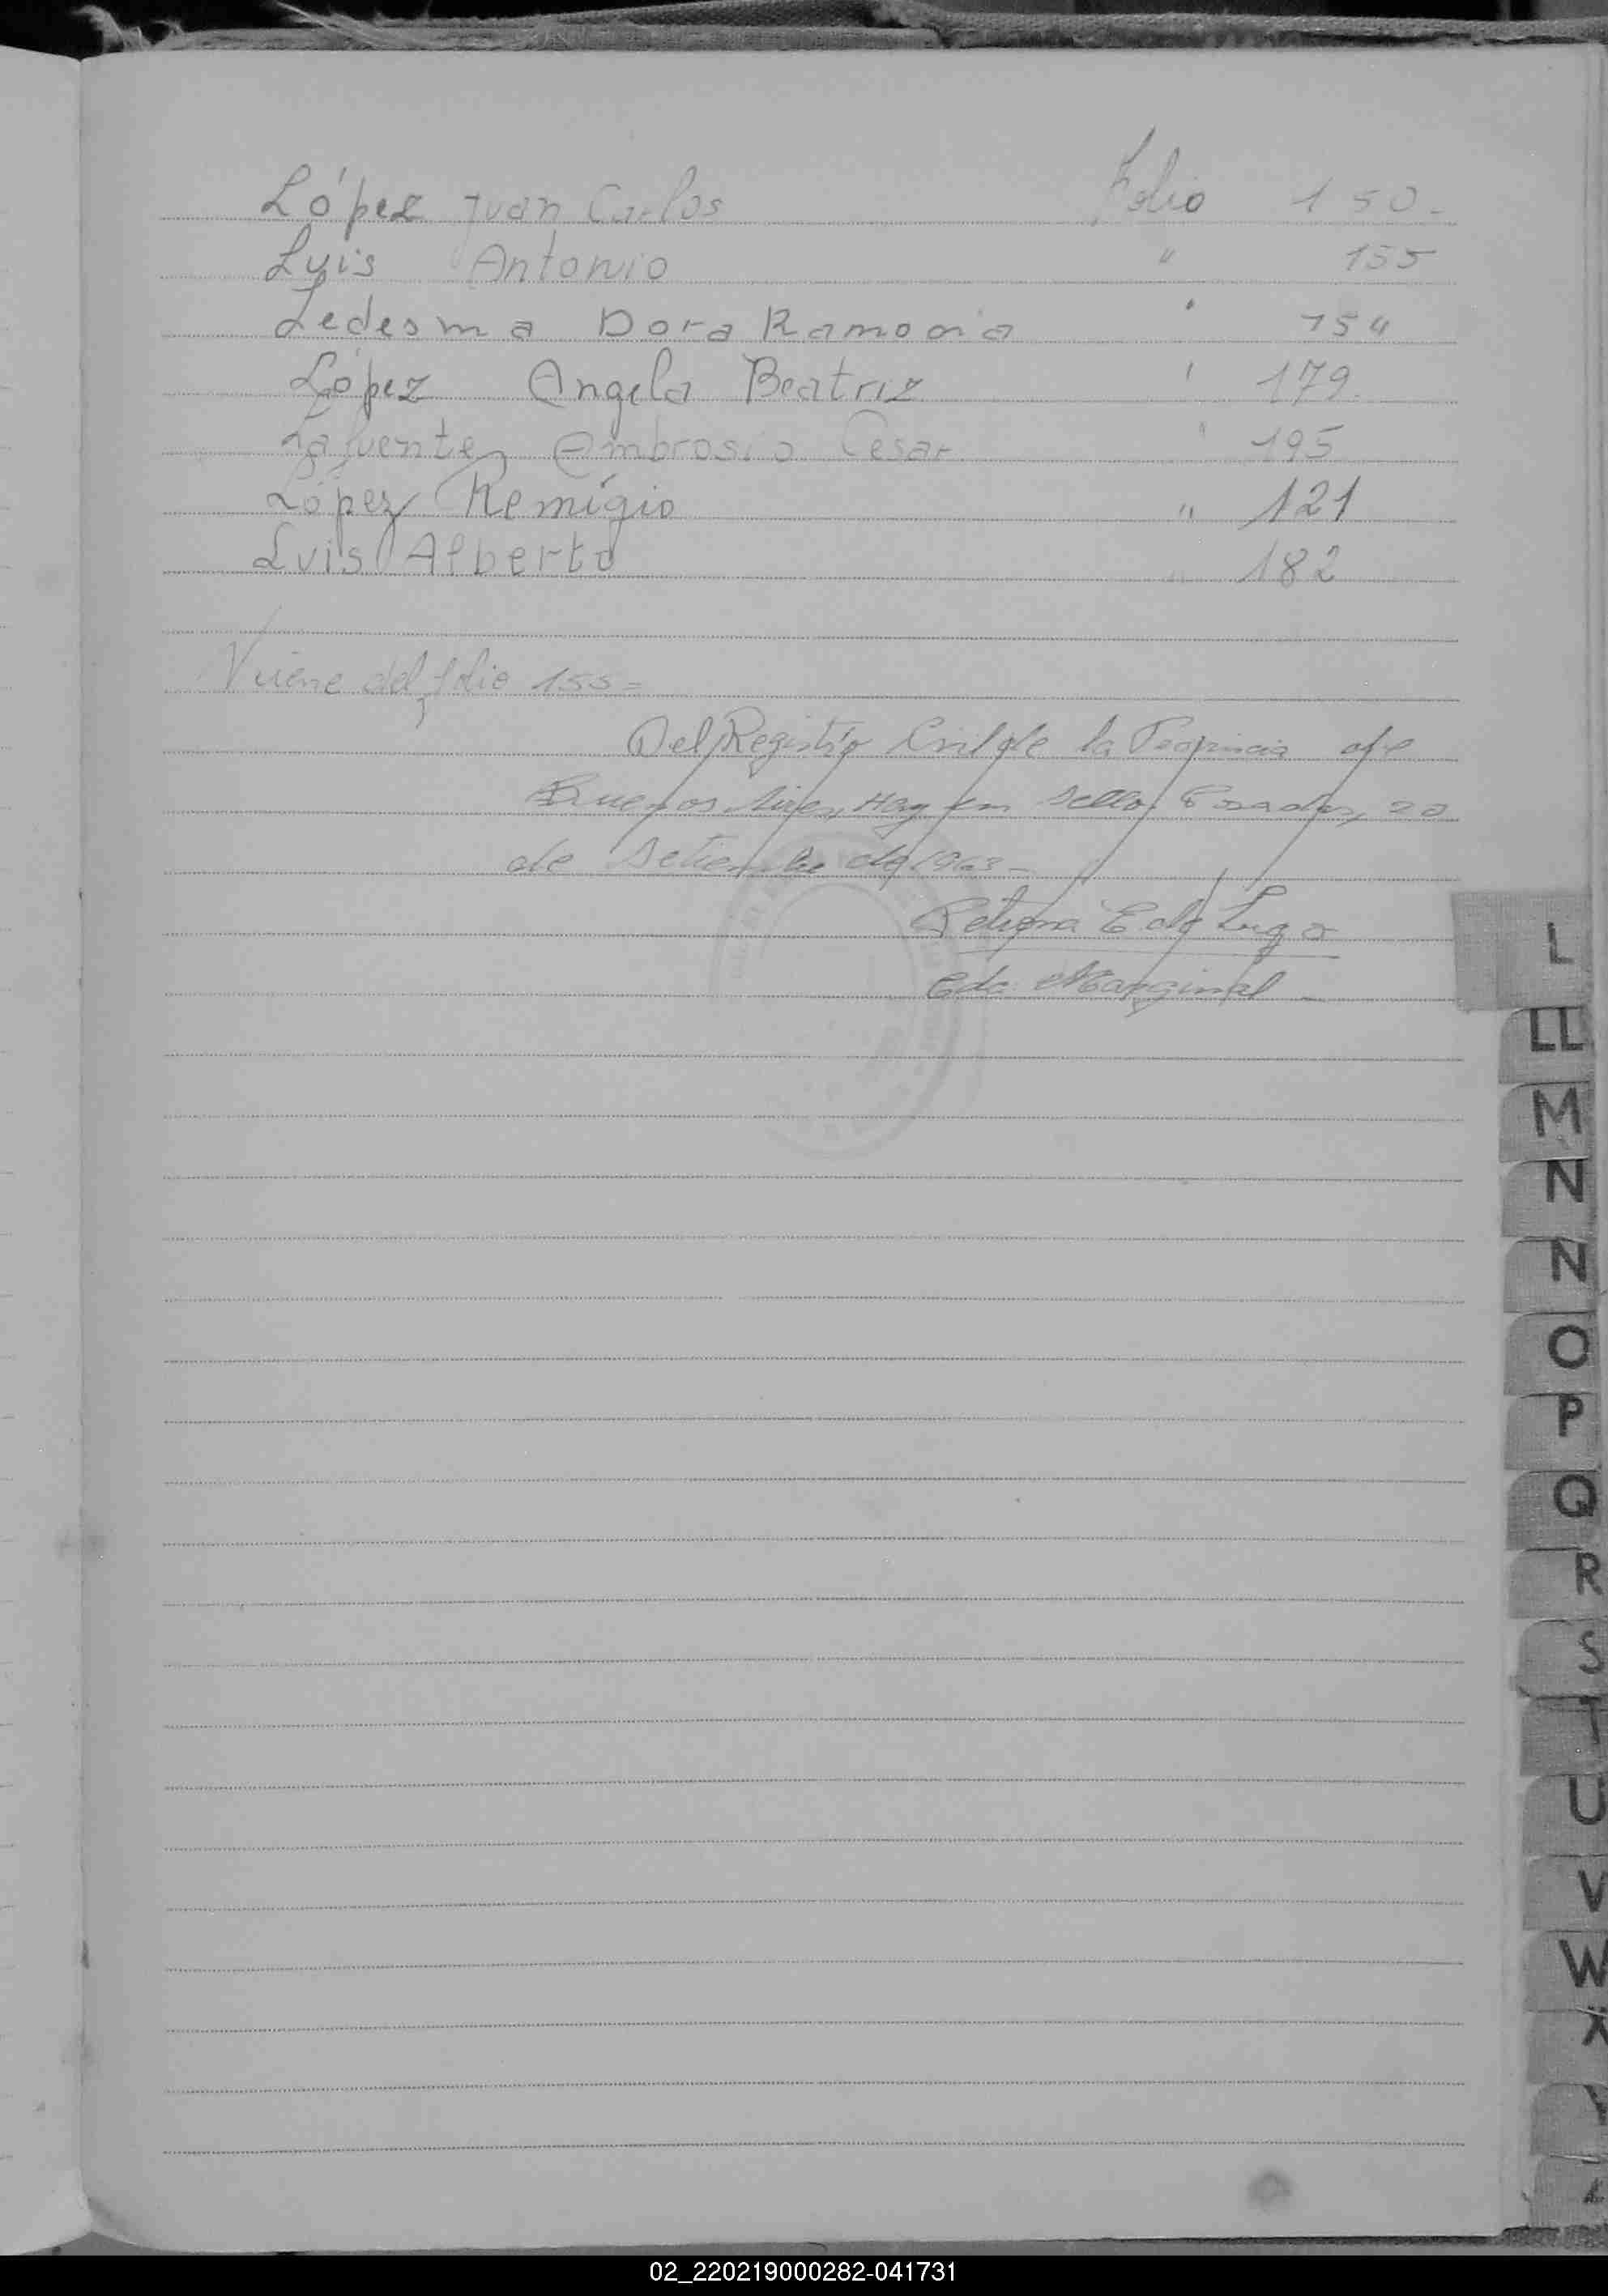 López Juan Carlos Folio 150.
Luis Antonio " 155
Ledesma Dora Ramona " 154
López Angela Beatriz " 179.
Lafuente Ambrosio Cesar " 195
López Remígio " 121
Luis Alberto " 182
Viene del folio 155=
Del Registro Civil de la Provincia de
Buenos Aires, Hay un sello. Posadas, 20
de Setiembre de 1963-
Petrona E. de Lugo
Eda. Marginal -
L
LL
M
N
N
O
P
Q
R
S
T
U
V
W
X
Y
Z
02_220219000282-041731